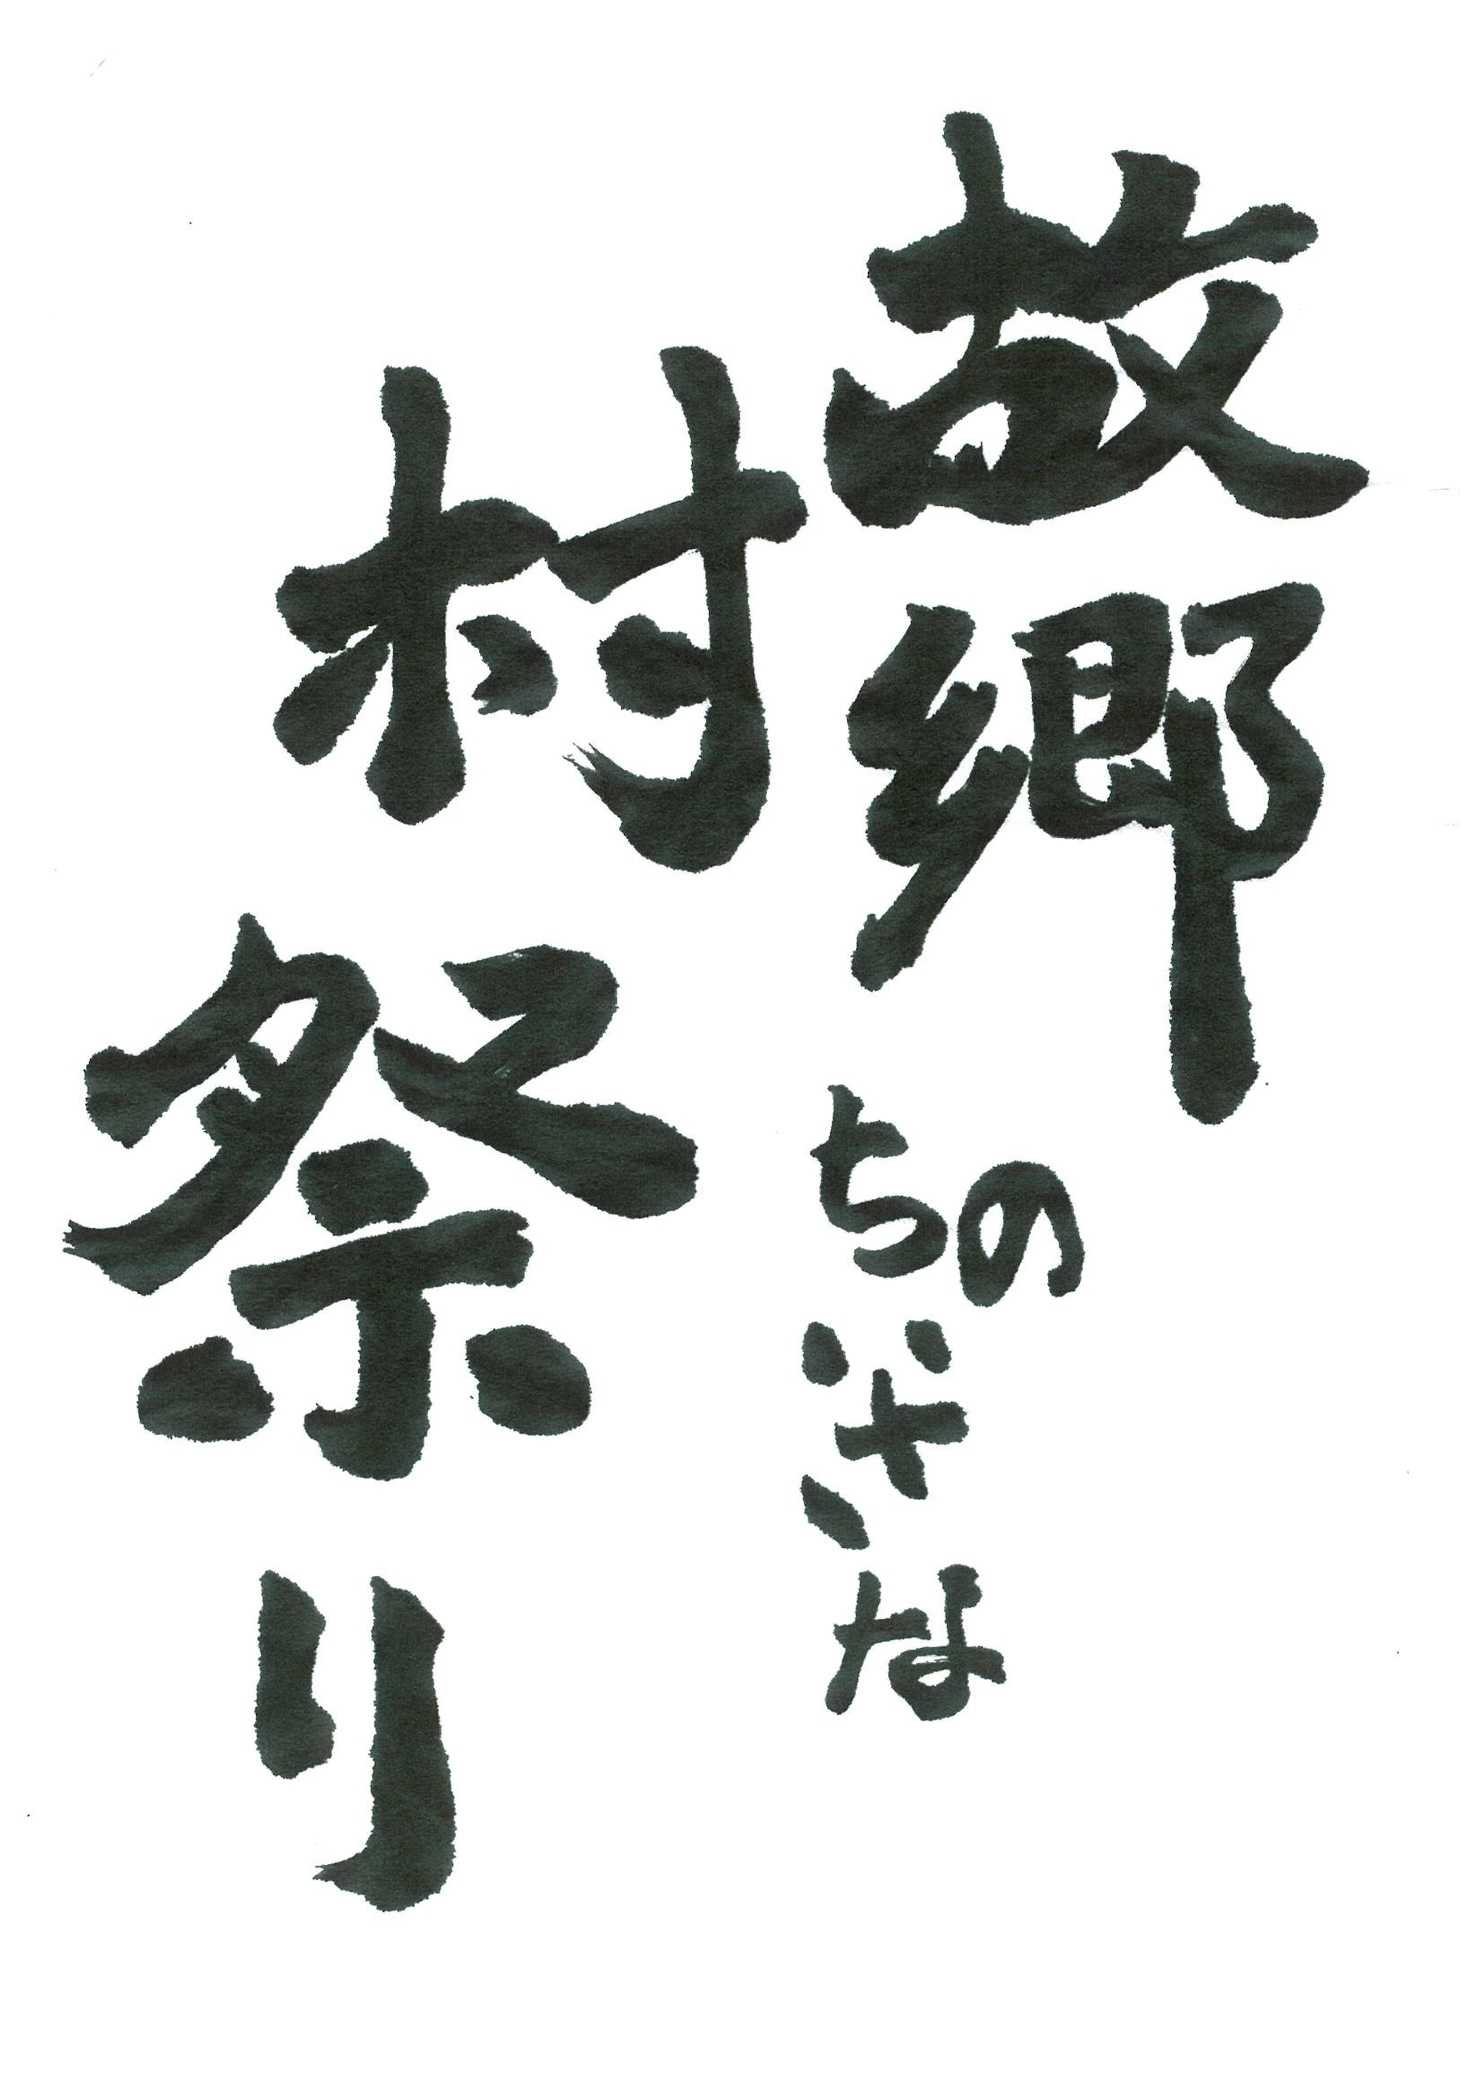 故郷の
ちいさな
村祭り